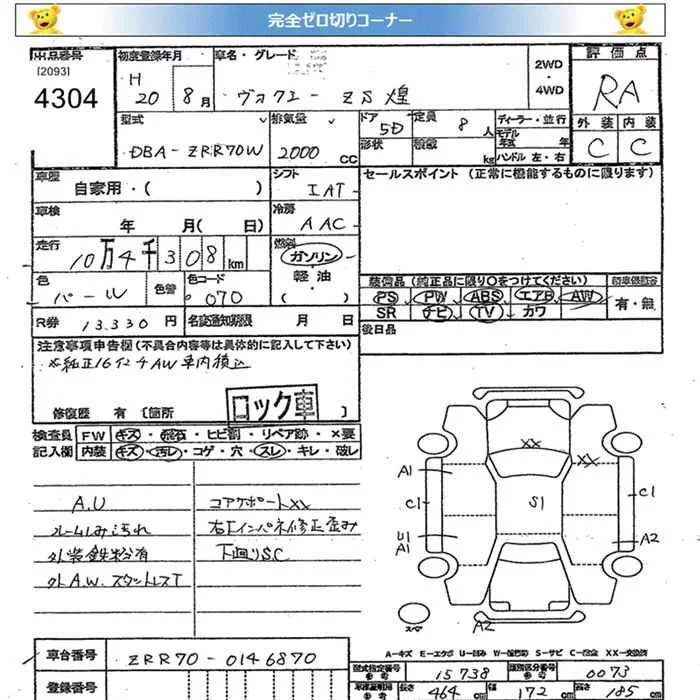 完全ゼロ切りコーナー
出品番号 初度登録年月 車名・グレード 2WD・4WD 評価点
[2093]
4304
H 20 8月 ヴォクシー ZS 煌 RA
型式 排気量 ドア 定員 ディーラー・並行 外装 内装
DBA-ZRR70W 2000 CC 5D 8人 C C
形状 積載 kg モデル年式 年
ハンドル 左・右
車歴 自家用・( ) シフト IAT セールスポイント (正常に機能するものに限ります)
車検 年 月( 日) 冷房 AAC
走行 10万4千308km 燃料 ガソリン・軽油・( )
色 パール 色替 色コード 070 装備品(純正品に限り○をつけてください)
PS PW ABS エアB AW 有・無
SR ナビ TV カワ
R券 13.330円 名変通知期限 月 日 後日品
注意事項申告欄 (不具合内容等は具体的に記入して下さい)
※純正16インチAW車内積込
ロック車
修復歴 有 [箇所 ]
検査員 FW キズ・飛石・ヒビ割・リペア跡・×要
記入欄 内装 キズ・汚レ・コゲ・穴・スレ・キレ・破レ
A.U コアサポートXX
ルームしみ汚れ 右Fインパネ修正歪み
外装鉄粉有 下廻りS.C
外A.W. スタットレスT
XX
XX
A1
C1 S1 C1
U1
A1 A2
スペ
A2
A-キズ E-エクボ U-凹み W-補修跡 S-サビ C-腐食 XX-交換済
車台番号 ZRR70-0146870
型式指定番号 15738 類別区分番号 0073
登録番号 長さ 464 cm 幅 172 cm 高さ 185 cm